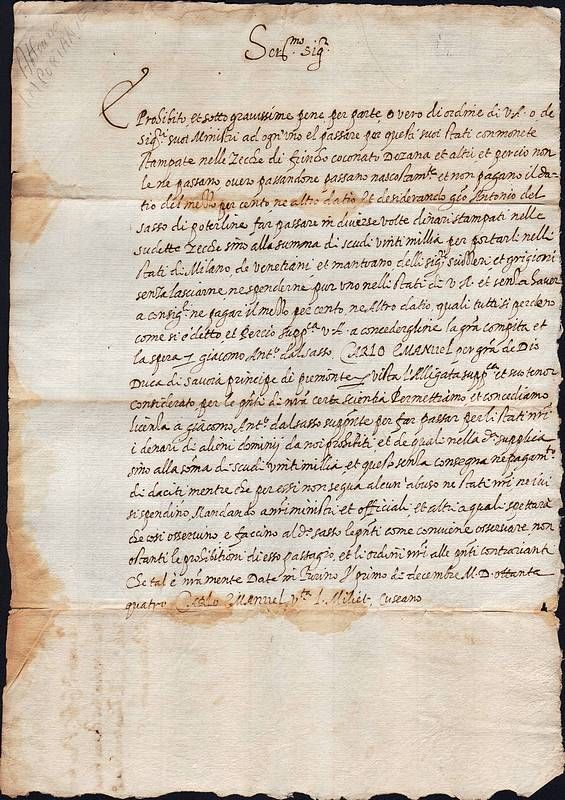 Ser.mo Sig.r
E Prohibito, et sotto gravissime pene per parte o vero di ordine di V.A. o de
Sig.ri suoi Ministri ad ogn'uno el passare per questi suoi stati con monete
stampate nelle Zecche di coconato Dezana et altri et percio non
le ne passano overo passandone passano nascostam.te et non pagano il da-
tio del mezzo per cento ne altro datio Et desiderando gio Antonio del
sasso di poterline far passare in diverse volte denari stampati nelle
sudette Zecche sino alla summa di scudi vinti millia per portarli nelli
stati di Milano de venetiani et mantoano delli sig.ri suizzeri et grigioni
senza lasciarne ne spenderne pur uno nelli stati di V.A. et senza haver
a consig.e ne pagar il mezzo per cento, ne Altro datio quali tutti si perdeno
come si è detto et Percio supp.ca V.A. a concedergline la gra compita et
la spera giacomo Ant.o dal sasso CARLO EMANUEL per gra de Dio
Duca di savoia principe di piemonte vista l'Alligata supp.ca et suo tenor
considerato per le pnti di nra certa scientia Permettiamo et concediamo
licenza a giacomo Ant.o dal sasso supp.nte per far passar per li stati nri
i denari di alieni dominij da noi prohibiti et de quali nella d.a supplica
sino alla soma di scudi vinti millia et questo senza consegna ne pagam.to
di daciti mentre che per essi non segua alcun abuso ne stati nri ne ivi
si spendino, Mandando a nri ministri et officiali et altri a quali spettarà
che cosi osservino et faccino al d.o sasso le pnti come conviene osservare non
ostanti le prohibitioni di esso passagio, et li ordini nri alle pnti contrarianti
Che tal è nra mente Date in Turino Il primo di decembre M.D. ottanta
quatro Carlo Emanuel v.ta Miliet, Cuseano